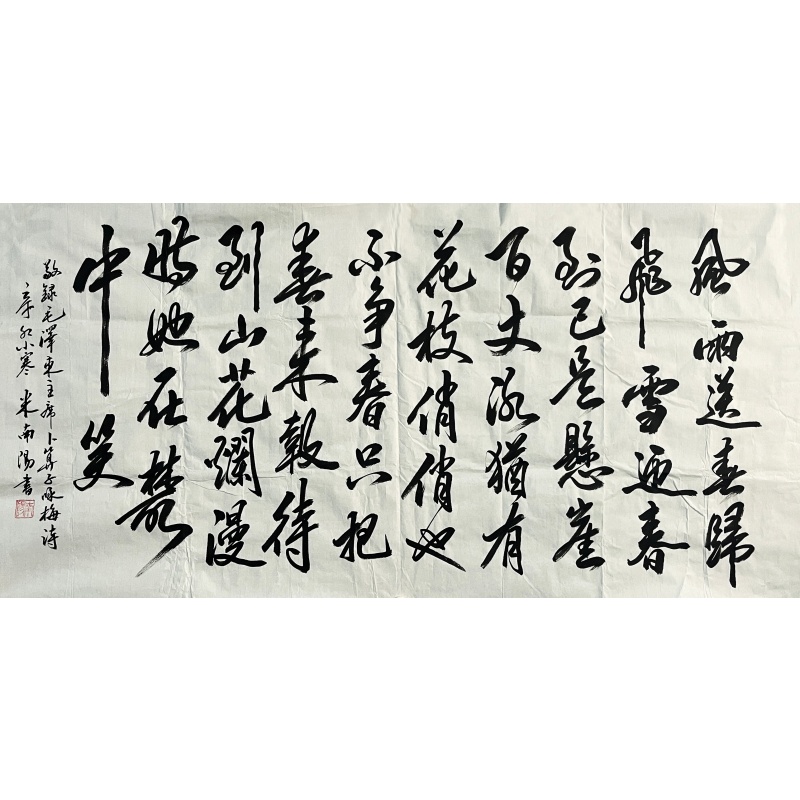 風雨送春歸
飛雪迎春
到已是懸崖
百丈冰猶有
花枝俏俏也
不争春只把
春来報待
到山花爛漫
時她在叢
中笑
敬録毛澤東主席卜算子咏梅詩
辛卯小寒 米南陽書